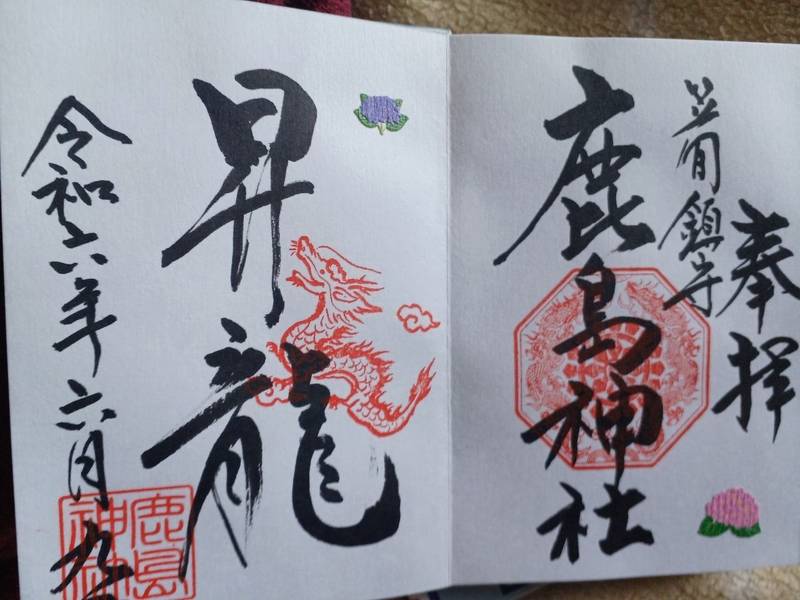 奉拝
笠間鎮守
鹿島神社
昇龍
令和六年六月九
鹿島
神社